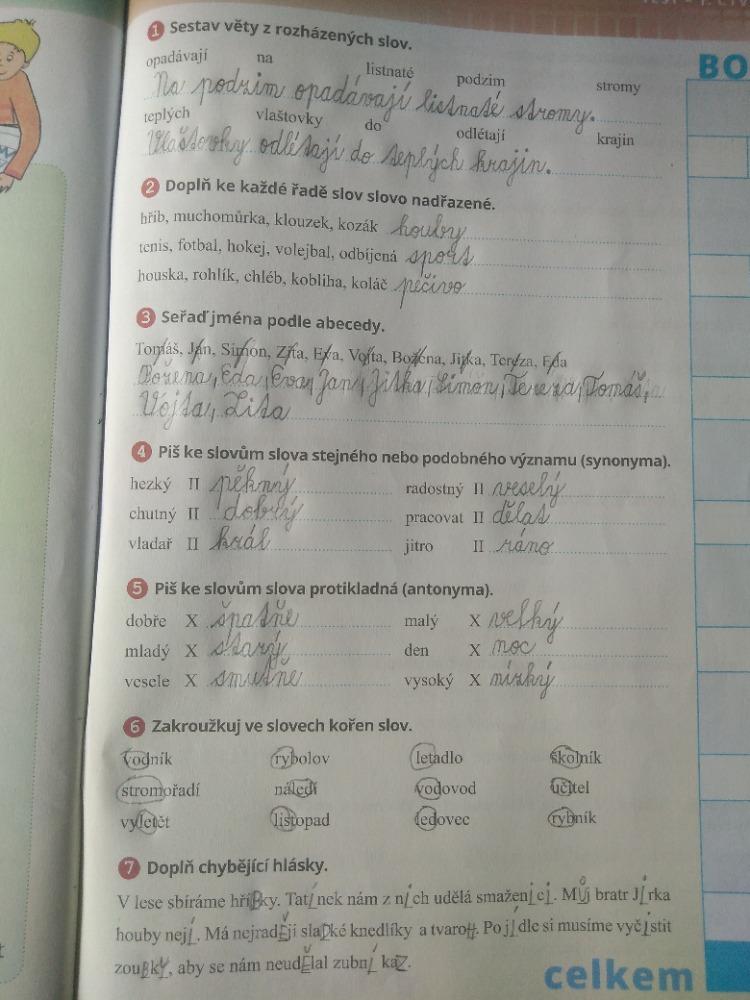 1 Sestav věty z rozházených slov.
BO
opadávají na listnaté podzim stromy
Na podzim opadávají listnaté stromy.
teplých vlaštovky do odlétají krajin
Vlaštovky odlétají do teplých krajin.
2 Doplň ke každé řadě slov slovo nadřazené.
hřib, muchomůrka, klouzek, kozák houby
tenis, fotbal, hokej, volejbal, odbíjená sport
houska, rohlík, chléb, kobliha, koláč pečivo
3 Seřaď jména podle abecedy.
Tomáš, Jan, Simon, Zita, Eva, Vojta, Božena, Jitka, Tereza, Eda
Božena, Eda, Eva, Jan, Jitka, Simon, Tereza, Tomáš,
Vojta, Zita
4 Piš ke slovům slova stejného nebo podobného významu (synonyma).
hezký II pěkný radostný II veselý
chutný II dobrý pracovat II dělat
vladař II král jitro II ráno
5 Piš ke slovům slova protikladná (antonyma).
dobře X špatně malý X velký
mladý X starý den X noc
vesele X smutně vysoký X nízký
6 Zakroužkuj ve slovech kořen slov.
vodník rybolov letadlo školník
stromořadí náledí vodovod učitel
vyletět listopad ledovec rybník
7 Doplň chybějící hlásky.
V lese sbíráme hříbky. Tatínek nám z nich udělá smaženici. Můj bratr Jirka
houby nejí. Má nejraději sladké knedlíky a tvaroh. Po jídle si musíme vyčistit
zoubky, aby se nám neudělal zubní kaz.
celkem